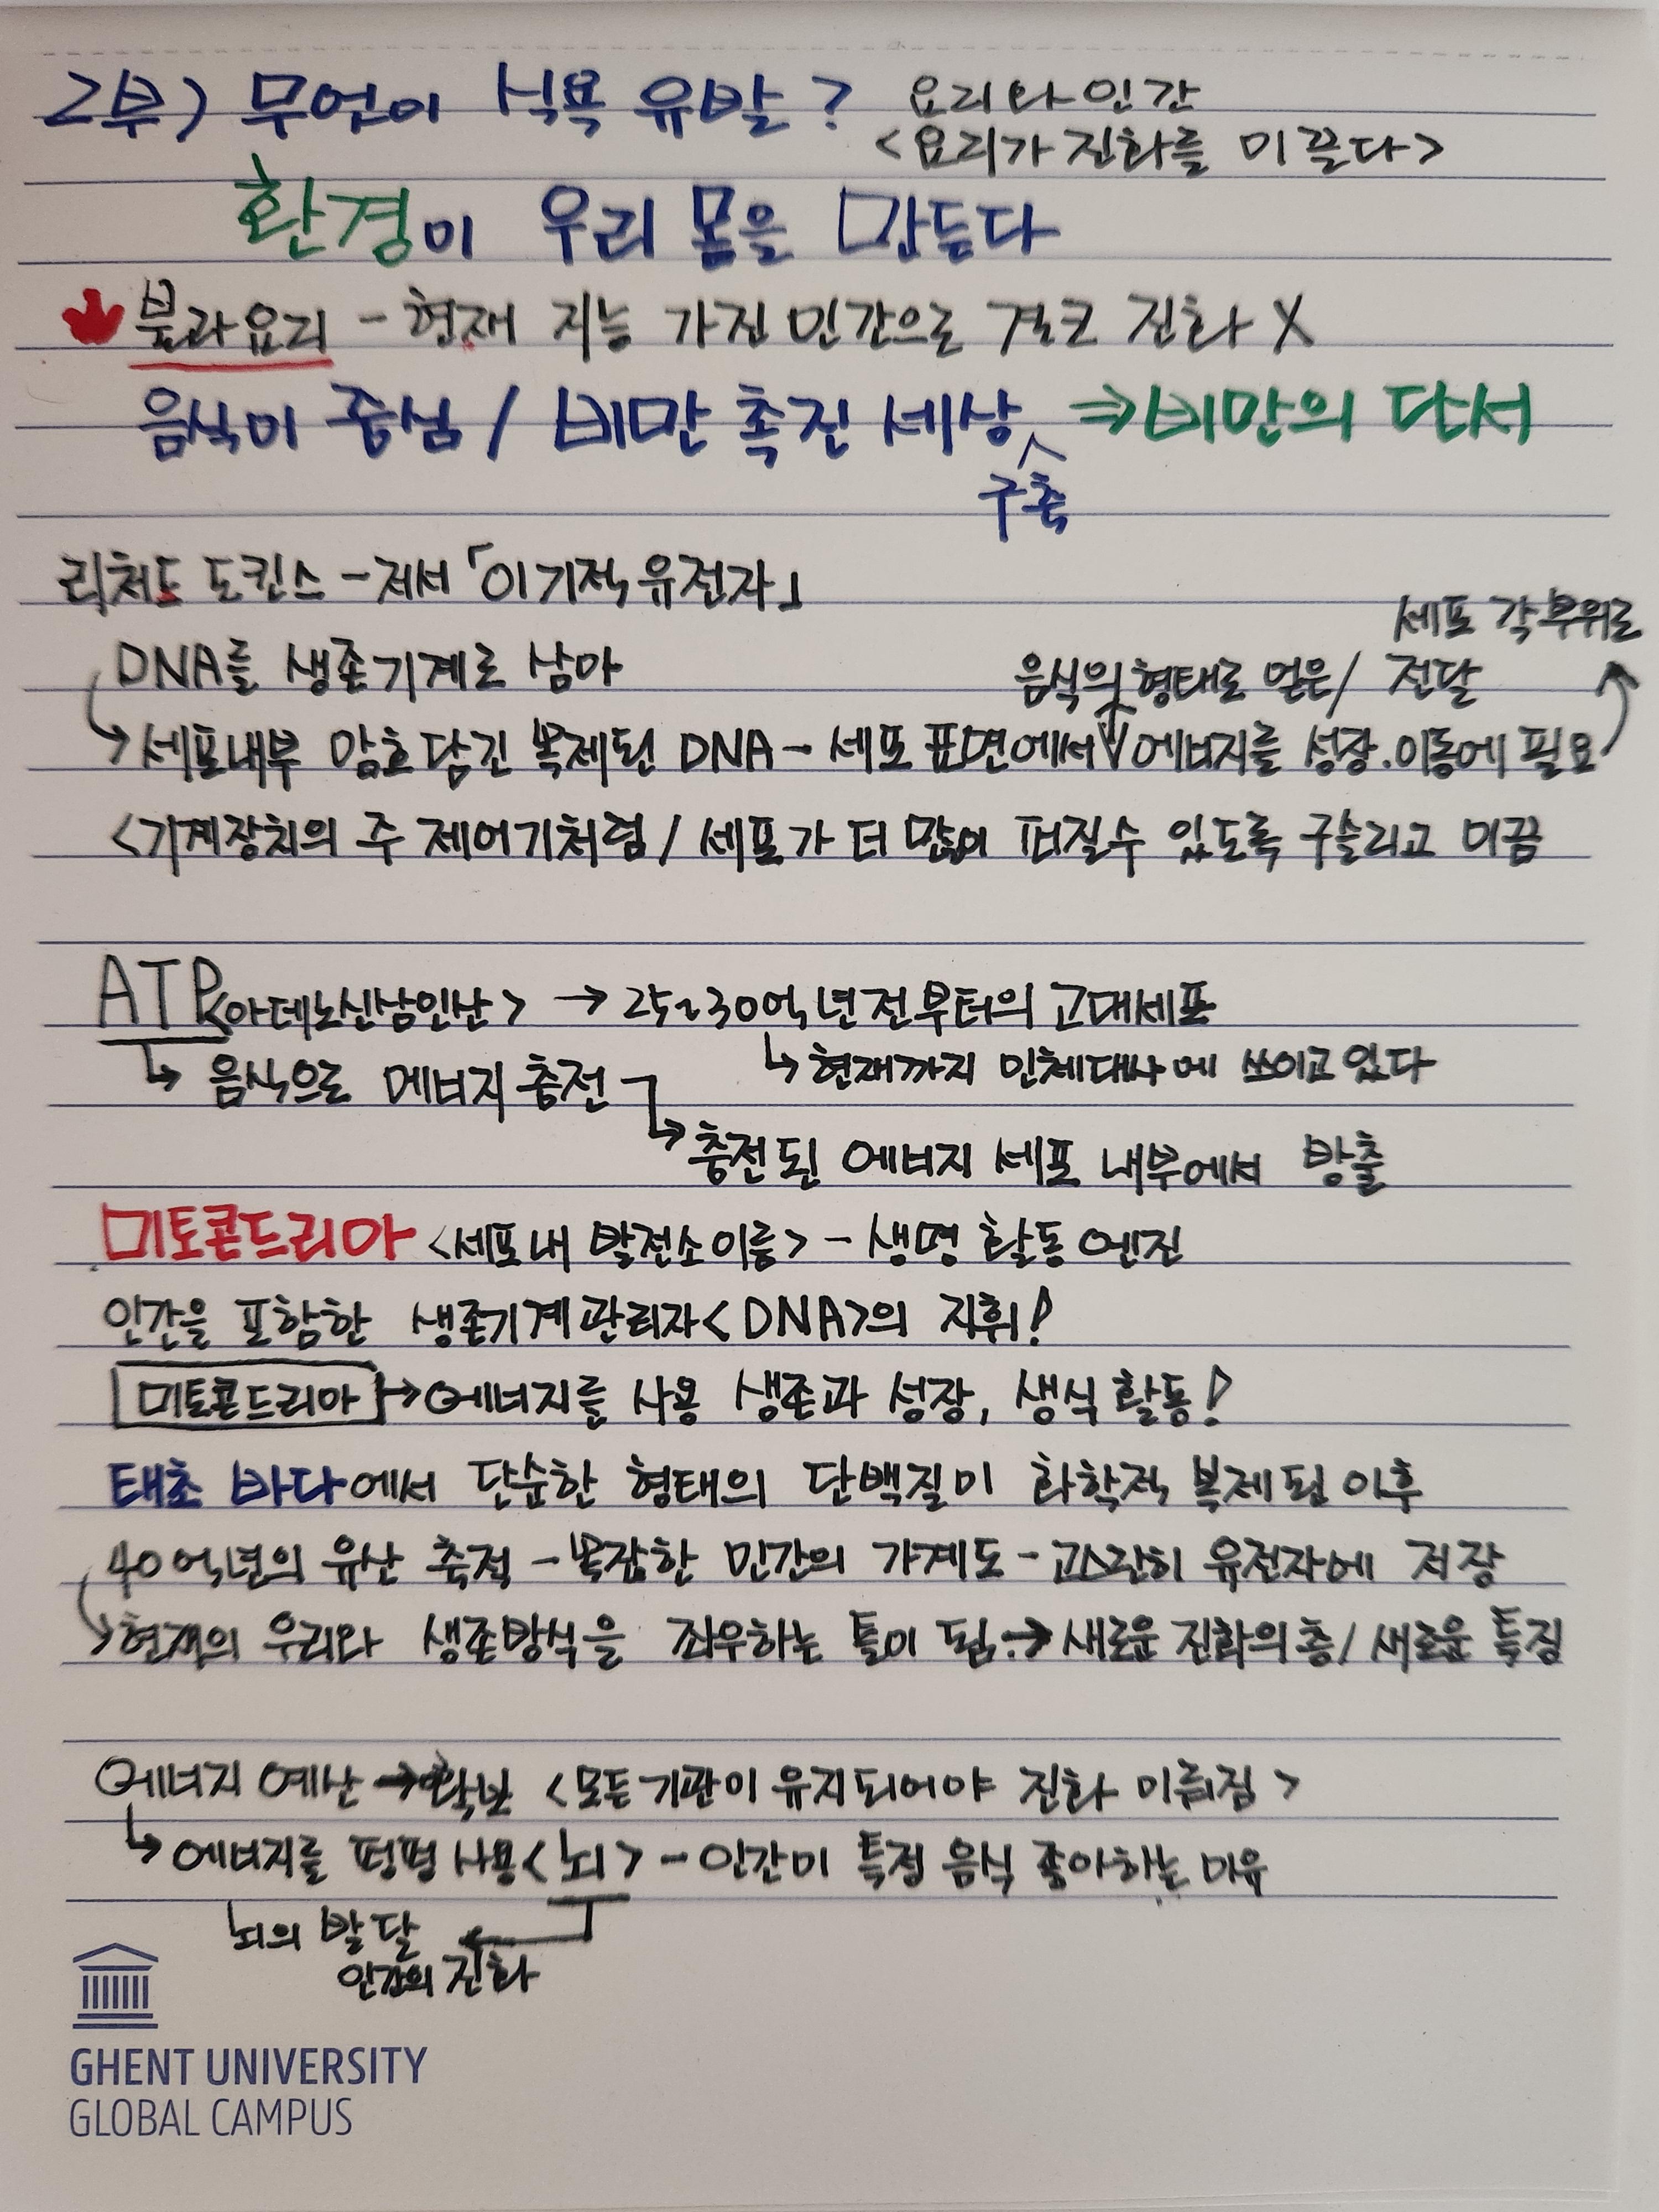 2부) 무엇이 식욕 유발? 요리와 인간
<요리가 진화를 이끌다>
환경이 우리 몸을 만든다
불과 요리 - 현재 지능 가진 인간으로 결코 진화 X
음식이 중심 / 비만 촉진 세상 ⇒ 비만의 단서
구축
리처드 도킨스 - 저서 「이기적 유전자」
세포 각 부위로
DNA를 생존기계로 삼아 음식의 형태로 얻은 / 전달
↳ 세포내부 암호 담긴 복제된 DNA - 세포 표면에서 ∨ 에너지를 성장.이동에 필요
<기계장치의 주 제어기처럼 / 세포가 더 많이 퍼질수 있도록 구슬리고 이끔
ATP <아데노신삼인산> → 25~30억년 전부터의 고대세포
↳ 현재까지 인체대사에 쓰이고 있다
↳ 음식으로 에너지 충전
↳ 충전된 에너지 세포 내부에서 방출
미토콘드리아 <세포내 발전소 이름> - 생명 활동 엔진
인간을 포함한 생존기계 관리자 <DNA>의 지휘!
미토콘드리아 → 에너지를 사용 생존과 성장, 생식 활동!
태초 바다에서 단순한 형태의 단백질이 화학적 복제된 이후
40억년의 유산 축적 - 복잡한 인간의 가계도 - 고스란히 유전자에 저장
↳ 현재의 우리와 생존방식을 좌우하는 틀이 됨. → 새로운 진화의 층 / 새로운 특징
에너지 예산 → 확보 <모든 기관이 유지되어야 진화 이뤄짐>
↳ 에너지를 펑펑 사용 <뇌> - 인간이 특정 음식 좋아하는 이유
뇌의 발달
인간의 진화
GHENT UNIVERSITY
GLOBAL CAMPUS